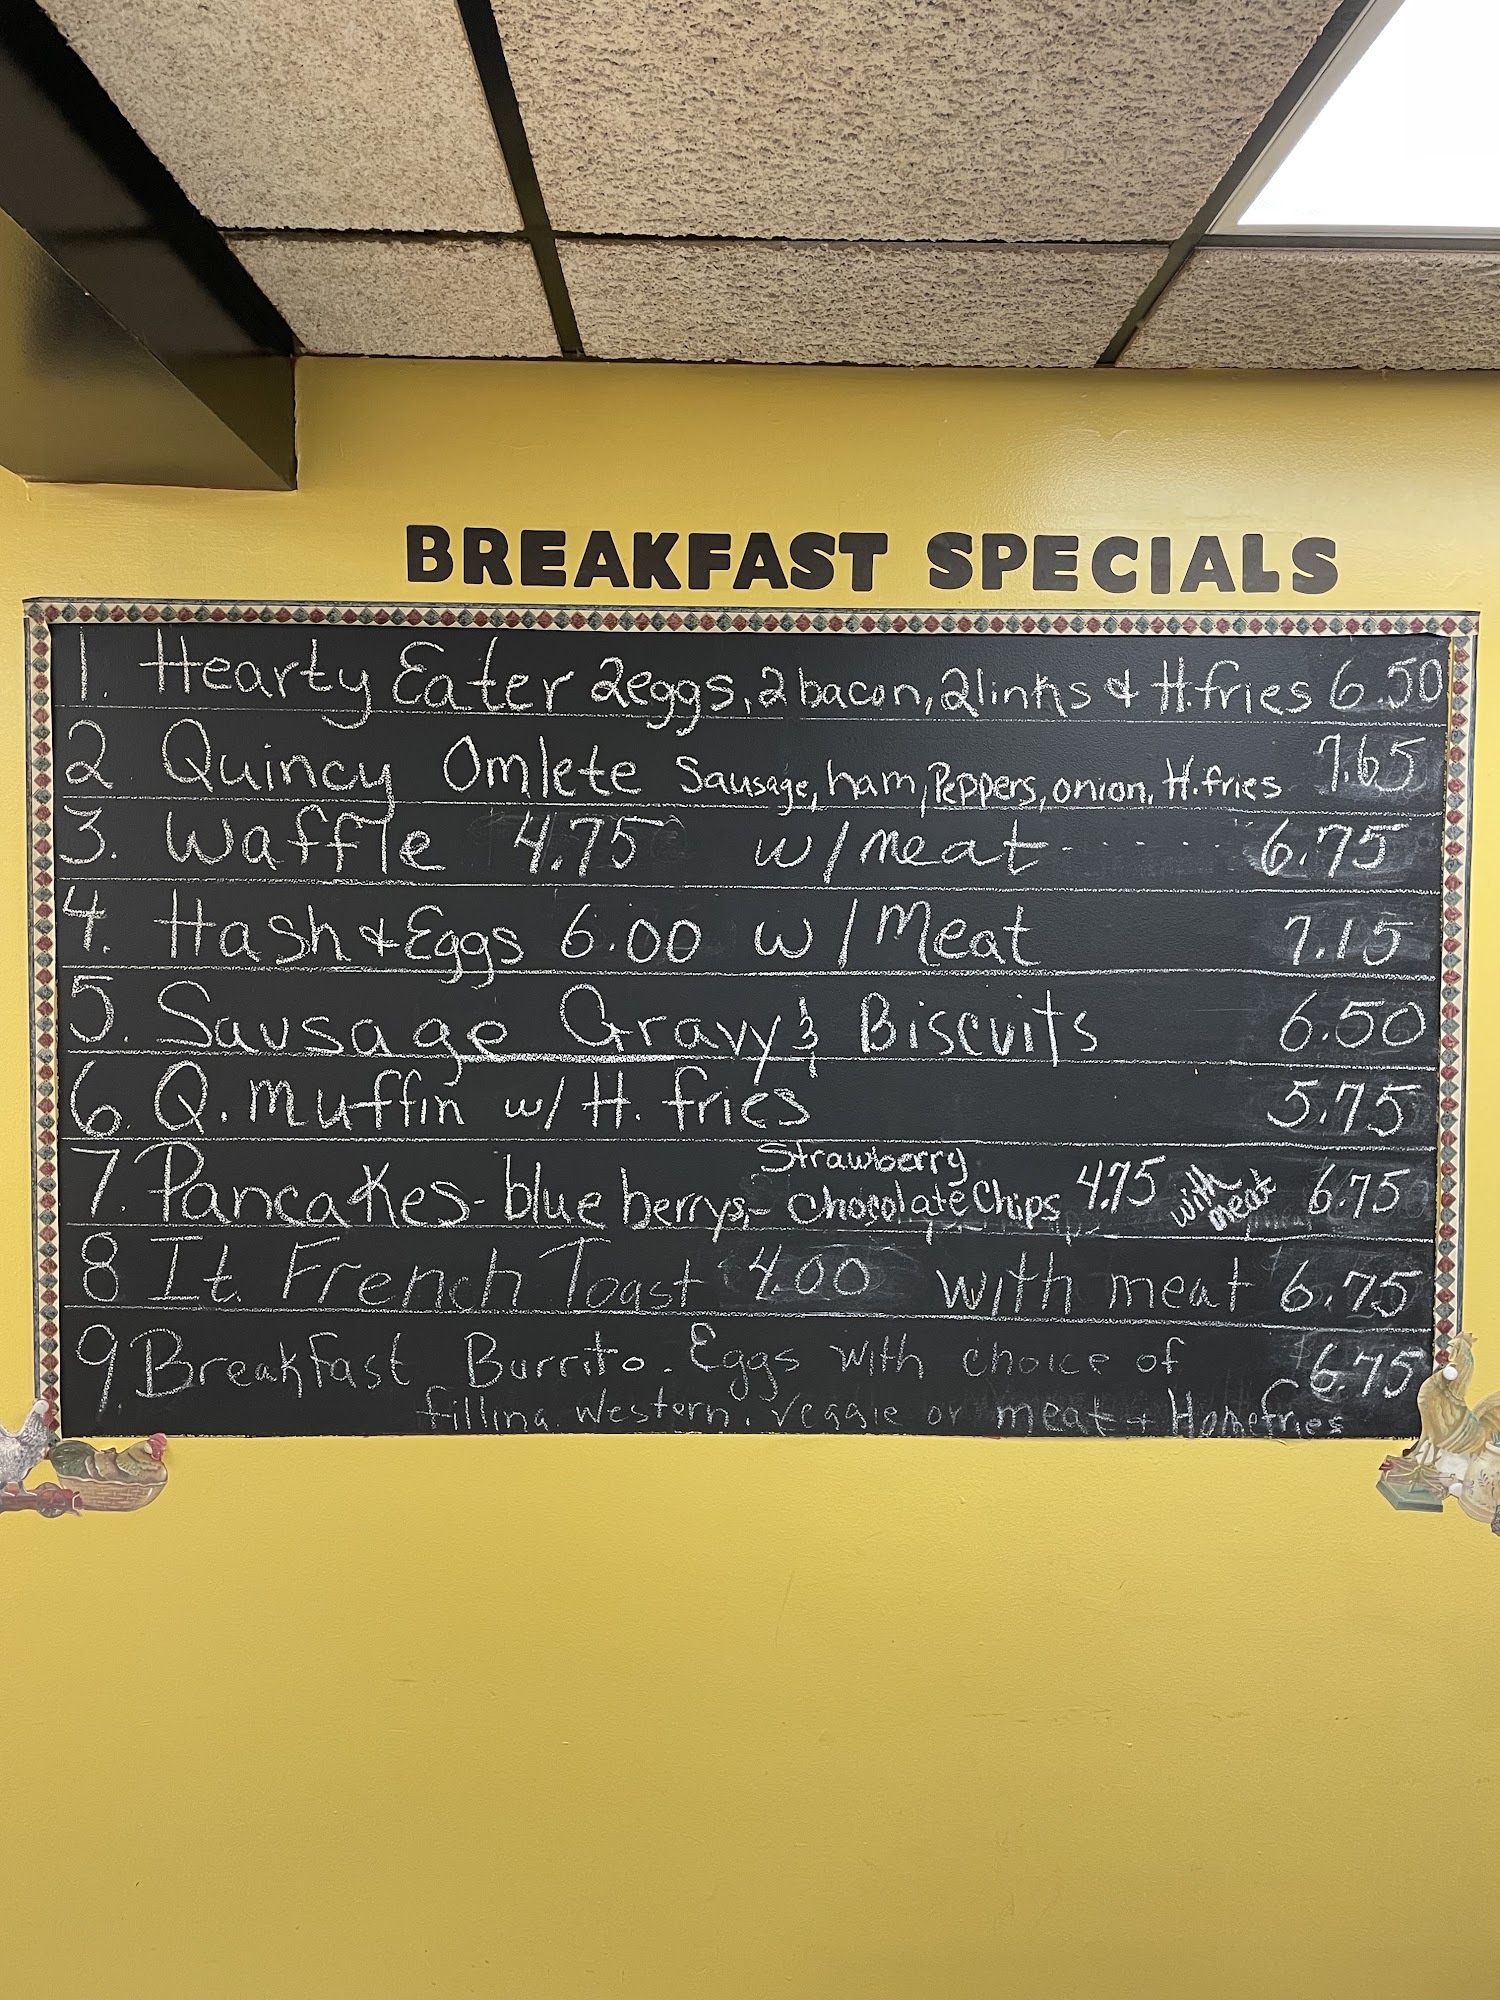 BREAKFAST SPECIALS
1. Hearty Eater 2eggs, 2 bacon, 2links & H.fries 6.50
2 Quincy Omlete Sausage, ham, Peppers, onion, H.fries 7.65
3. Waffle 4.75 w/meat------ 6.75
4. Hash & Eggs 6.00 w/Meat 7.15
5. Sausage Gravy & Biscuits 6.50
6. Q.muffin w/ H. fries 5.75
7. Pancakes - blue berrys, - Strawberry chocolate Chips 4.75 with meat 6.75
8 It. French Toast 4.00 with meat 6.75
9. Breakfast Burrito. Eggs with choice of $6.75
filling. Western. Veggie or meat + Homefries